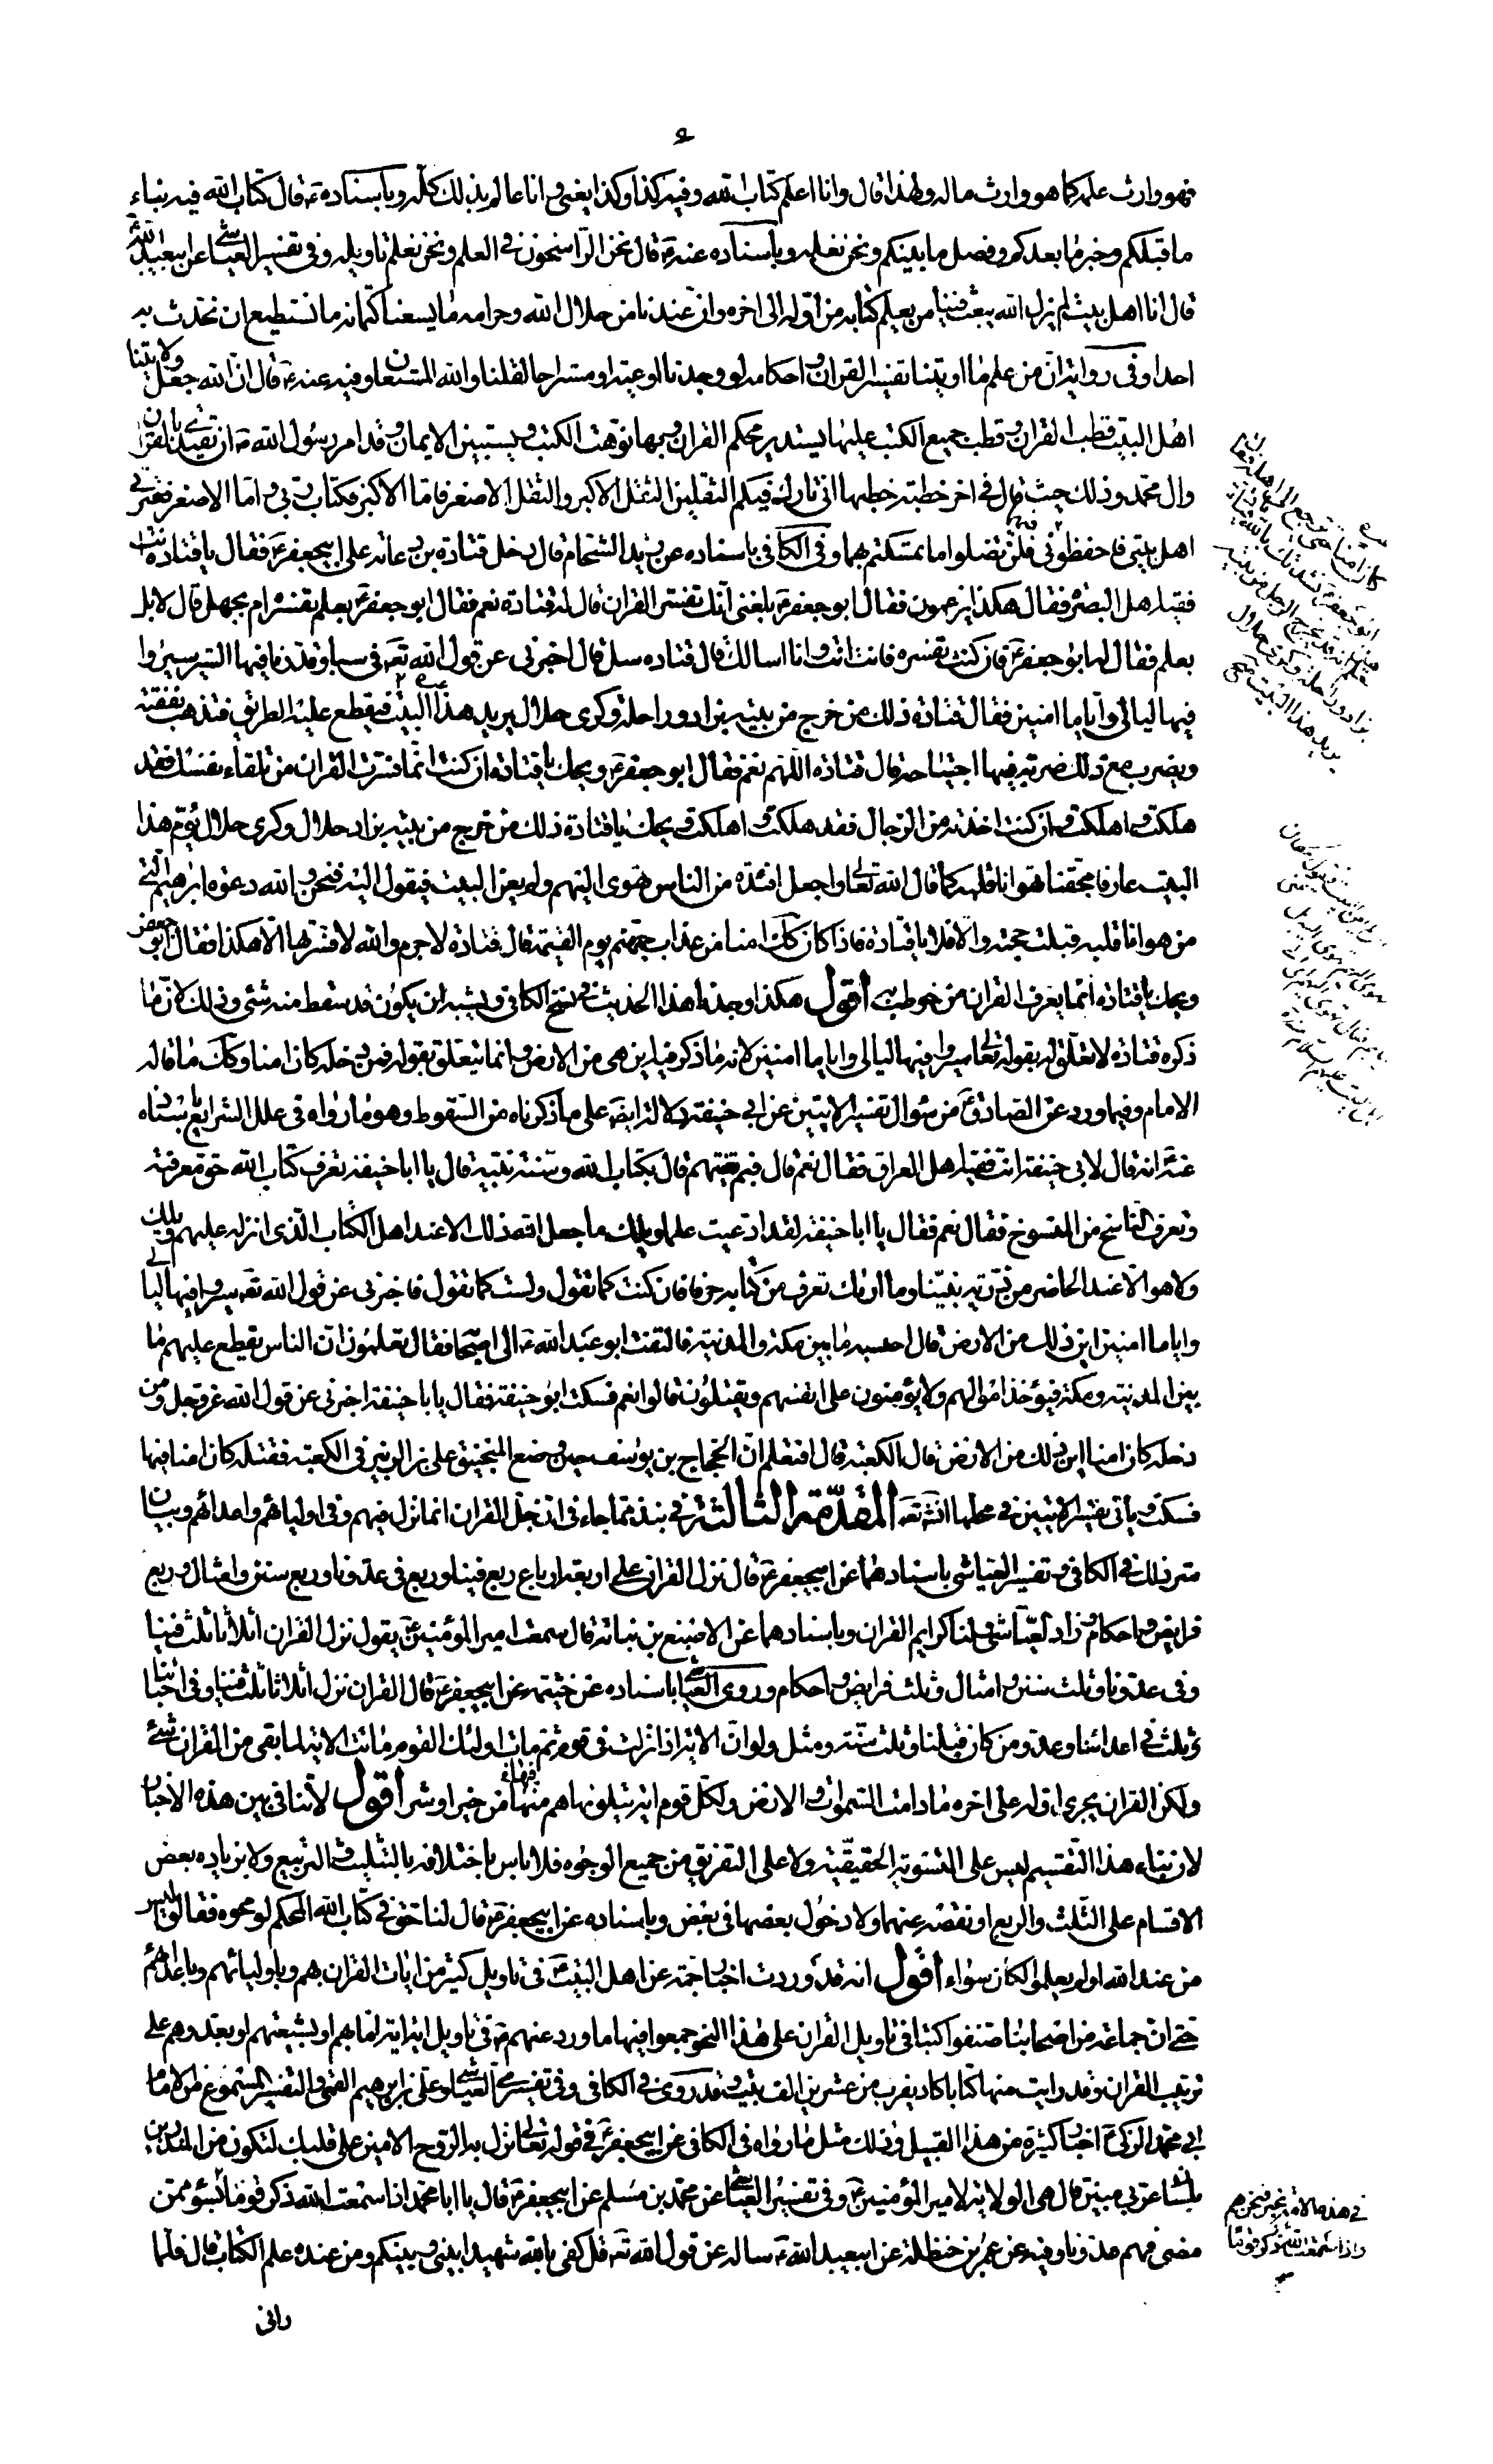 فهو وارث علمه كما هو وارث ماله ولهذا قال وانا اعلم كتاب الله وفيه كذا وكذا يعني وانا عالم بذلك كله وباسناده ع قال كتاب الله فيه نباء
ما قبلكم وخبر ما بعدكم وفصل ما بينكم ونحن نعلمه وباسناده عنه ع قال نحن الراسخون في العلم ونحن نعلم تاويله وفي تفسير العياشي عن ابيعبد الله ع
قال انا اهل بيت لم يزل الله يبعث فينا من يعلم كتابه من اوله الى اخره وان عندنا من حلال الله وحرامه ما يسعنا كتمانه ما نستطيع ان نحدث به
احدا وفي رواية ان من علم ما اوتينا تفسير القران واحكامه لو وجدنا اوعية او مستراحا لقلنا والله المستعان وفيه عنه ع قال ان الله جعل ولايتنا
اهل البيت قطب القران وقطب جميع الكتب عليها يستدير محكم القران وبها نوهت الكتب ويستبين الايمان وقد امر رسول الله ص ان يقتدى بالقران
وال محمد وذلك حيث قال في اخر خطبة خطبها اني تارك فيكم الثقلين الثقل الاكبر والثقل الاصغر فاما الاكبر فكتاب ربي واما الاصغر فعترتي
اهل بيتي فاحفظوني فيهما فلن تضلوا ما تمسكتم بهما وفي الكافي باسناده عن زيد الشحام قال دخل قتادة بن دعامة على ابيجعفر ع فقال يا قتادة انت
فقيه اهل البصرة فقال هكذا يزعمون فقال ابو جعفر ع بلغني انك تفسر القران قال له قتادة نعم فقال ابو جعفر ع بعلم تفسره ام بجهل قال لا بل
بعلم فقال له ابو جعفر ع فان كنت تفسره فانت انت وانا اسالك قال قتاده سل قال اخبرني عن قول الله تعه في سبا وقدرنا فيها السير سيروا
فيها ليالي واياما امنين فقال قتادة ذلك من خرج من بيته بزاد وراحلة وكرى حلال يريد هذا البيت فيقطع عليه الطريق فتذهب نفقته
ويضرب مع ذلك ضربة فيها اجتياحه قال قتاده اللهم نعم فقال ابو جعفر ع ويحك يا قتادة ان كنت انما فسرت القران من تلقاء نفسك فقد
هلكت واهلكت وان كنت اخذته من الرجال فقد هلكت واهلكت ويحك يا قتادة ذلك من خرج من بيته بزاد حلال وكرى حلال يؤم هذا
البيت عارفا بحقنا يهوانا قلبه كما قال الله تعالى واجعل افئدة من الناس تهوى اليهم ولم يعن البيت فيقول اليه فنحن والله دعوة ابرهيم التي
من هوانا قلبه قبلت حجته والا فلا يا قتادة فاذا كان كك امنا من عذاب جهنم يوم القيمة قال قتادة لا جرم والله لا فسرتها الا هكذا فقال ابو جعفر
ويحك يا قتاده انما يعرف القران من خوطب به اقول هكذا وجدنا هذا الحديث في نسخ الكافي ويشبه ان يكون قد سقط منه شئ وذلك لان ما
ذكره قتادة لا تعلق له بقوله تعالى سيروا فيها ليالي واياما امنين لانه ما ذكر فيه اين هي من الارض وانما يتعلق بقوله فمن دخله كان امنا وكك ما قاله
الامام وفيما ورد عن الصادق ع من سؤال تفسير الايتين عن ابي حنيفة دلالة ايضا على ما ذكرناه من السقوط وهو ما رواه في علل الشرايع باسناده
عنه ع انه قال لابي حنيفة انت فقيه اهل العراق فقال نعم قال فبم تفتيهم قال بكتاب الله وسنة نبيه قال يا ابا حنيفة تعرف كتاب الله حق معرفته
وتعرف الناسخ من المنسوخ فقال نعم فقال يا ابا حنيفة لقد ادعيت علما ويلك ما جعل الله ذلك الا عند اهل الكتاب الذي انزله عليهم ويلك
ولا هو الا عند الخاص من ذرية نبينا وما اراك تعرف من كتابه حرفا فان كنت كما تقول ولست كما تقول فاخبرني عن قول الله تعه سيروا فيها ليالي
واياما امنين اين ذلك من الارض قال احسبه ما بين مكة والمدينة فالتفت ابو عبد الله ع الى اصحابه فقال تعلمون ان الناس يقطع عليهم ما
بين المدينة ومكة فيؤخذ اموالهم ولا يؤمنون على انفسهم ويقتلون قالوا نعم فسكت ابو حنيفة فقال يا با حنيفة اخبرني عن قول الله عز وجل ومن
دخله كان امنا اين ذلك من الارض قال الكعبة قال افتعلم ان الحجاج بن يوسف حين وضع المنجنيق على ابن الزبير في الكعبة فقتله كان امنا فيها
فسكت وياتي تفسير الايتين في محلها انشاء الله تعه المقدمة الثالثة في نبذ مما جاء في ان جل القران انما نزل فيهم وفي اوليائهم واعدائهم وبيان
سر ذلك في الكافي وتفسير العياشي باسنادهما عن ابيجعفر ع قال نزل القران على اربعة ارباع ربع فينا وربع في عدونا وربع سنن وامثال وربع
فرايض واحكام وزاد العياشي ولنا كرايم القران وباسنادهما عن الاصبغ بن نباتة قال سمعت امير المؤمنين ع يقول نزل القران اثلاثا ثلث فينا
وفي عدونا وثلث سنن وامثال وثلث فرايض واحكام وروى العياشي باسناده عن خيثمة عن ابيجعفر ع قال القران نزل اثلاثا ثلث فينا وفي احبائنا
وثلث في اعدائنا وعدو من كان قبلنا وثلث سنة ومثل ولو ان الاية اذا نزلت في قوم ثم مات اولئك القوم ماتت الاية لما بقي من القران شئ
ولكن القران يجري اوله على اخره ما دامت السموات والارض ولكل قوم اية يتلونها هم منها من خير او شر اقول لا تنافي بين هذه الاخبار
لان بناء هذا التقسيم ليس على التسوية الحقيقية ولا على التفريق من جميع الوجوه فلا باس باختلافه بالتثليث والتربيع ولا بزياده بعض
الاقسام على الثلث والربع او نقصه عنهما ولا دخول بعضها في بعض وباسناده عن ابيجعفر ع قال لنا حق في كتاب الله المحكم لو محوه فقالوا ليس
من عند الله او لم يعلموا لكان سواء اقول انه قد وردت اخبار جمة عن اهل البيت ع في تاويل كثير من ايات القران بهم وباوليائهم وباعدائهم
حتى ان جماعة من اصحابنا صنفوا كتبا في تاويل القران على هذا النحو جمعوا فيها ما ورد عنهم ع في تاويل اية اية اما بهم او بشيعتهم او بعدوهم على
ترتيب القران وقد رايت منها كتابا كاد يقرب من عشرين الف بيت وقد روى في الكافي وفي تفسيري العياشي وعلي بن ابرهيم القمي والتفسير المسموع من الامام
ابي محمد الزكي ع اخبار كثيرة من هذا القبيل وذلك مثل ما رواه في الكافي عن ابيجعفر ع في قوله تعالى نزل به الروح الامين على قلبك لتكون من المنذرين
بلسان عربي مبين قال هي الولاية لامير المؤمنين ع وفي تفسير العياشي عن محمد بن مسلم عن ابيجعفر ع قال يا ابا محمد اذا سمعت الله ذكر قوما بسوء ممن
مضى فهم عدونا وفيه عن عمر بن حنظلة عن ابيعبد الله ع ساله عن قول الله تعه قل كفى بالله شهيدا بيني وبينكم ومن عنده علم الكتاب قال فلما
راني
في هذه الامة بخير فنحن هم
واذا سمعت الله ذكر قوما